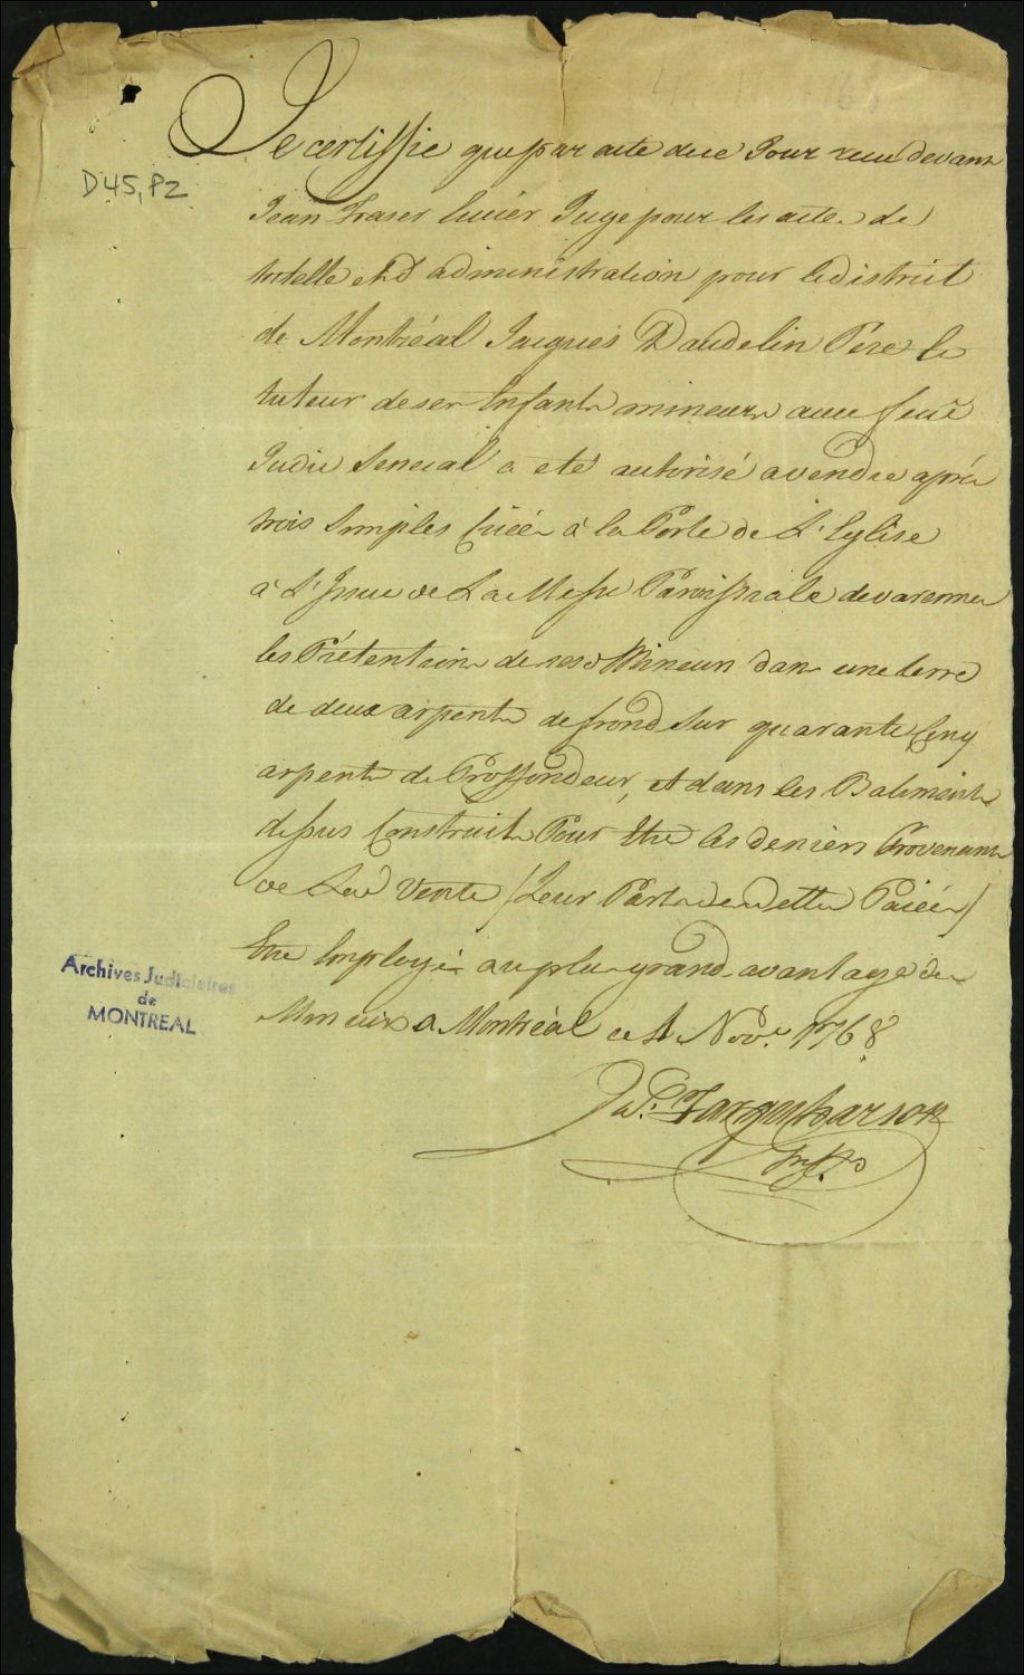 D45, P2
Je certiffie que par acte de ce Jour recu devant
Jean Fraser Ecuier Juge pour les actes de
tutelle et d administration pour le district
de Montréal Jacques Daudelin Pere le
tuteur de ses Enfants mineurs avec feue
Judic Senecal a eté autorisé a vendre après
trois Simples Criées à la Porte de L'Eglise
à L'Issue de La Messe Paroissiale de varennes
les Prétentions de ses d Mineurs dans une terre
de deux arpents de frond Sur quarante Cinq
arpents de Proffondeur, et dans les Batiments
dessus Construits Pour Etre les deniers Provenants
de La d Vente /Leur Parts de dettes Paiées/
Etre Employés au plus grand avantage des
Mineurs a Montréal ce 4 Nov.e 1768
Farquharson
Archives Judiciaires
de
MONTREAL